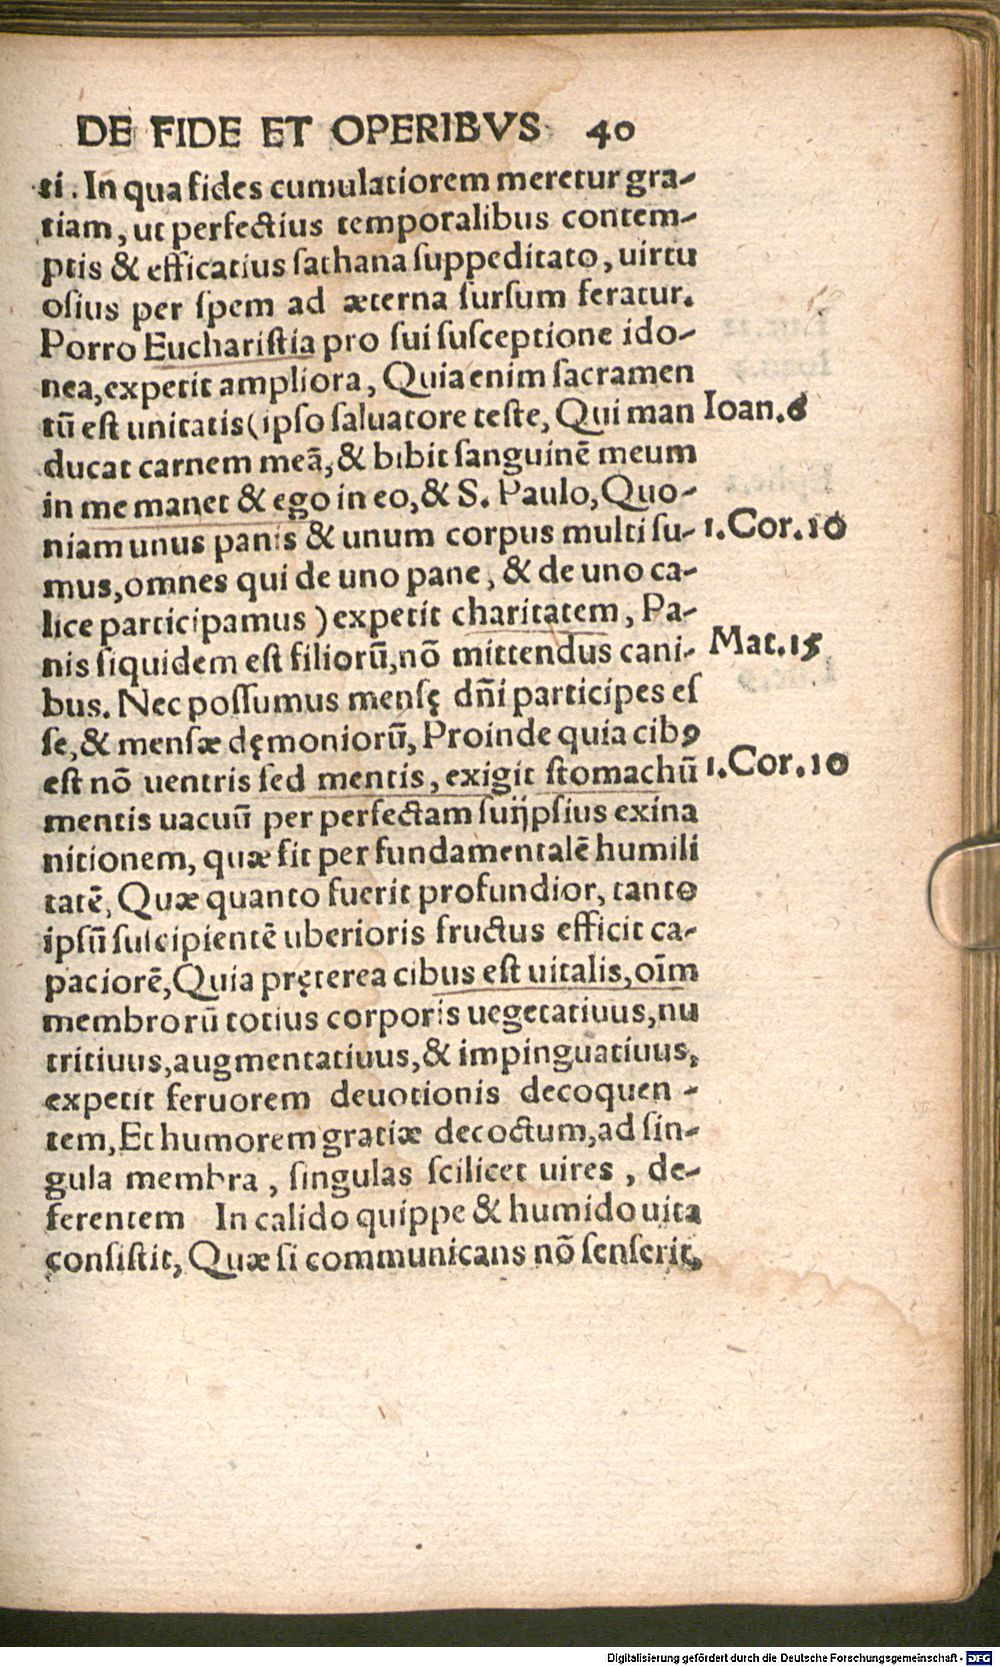 DE FIDE ET OPERIBVS 40
ti. In qua fides cumulatiorem meretur gra-
tiam, ut perfectius temporalibus contem-
ptis & efficatius sathana suppeditato, uirtu
osius per spem ad æterna sursum feratur.
Porro Eucharistia pro sui susceptione ido-
nea, expetit ampliora, Quia enim sacramen
tū est unitatis (ipso saluatore teste, Qui man Ioan.6
ducat carnem meā, & bibit sanguinē meum
in me manet & ego in eo, & S. Paulo, Quo-
niam unus panis & unum corpus multi su- 1.Cor.10
mus, omnes qui de uno pane, & de uno ca-
lice participamus) expetit charitatem, Pa-
nis siquidem est filiorū, nō mittendus cani- Mat.15
bus. Nec possumus mensę dñi participes es
se, & mensæ dęmoniorū, Proinde quia cibꝰ
est nō uentris sed mentis, exigit stomachū 1.Cor.10
mentis uacuū per perfectam suijpsius exina
nitionem, quæ fit per fundamentalē humili
tatē, Quæ quanto fuerit profundior, tanto
ipsū suscipientē uberioris fructus efficit ca-
paciorē, Quia pręterea cibus est uitalis, oīm
membrorū totius corporis uegetatiuus, nu
tritiuus, augmentatiuus, & impinguatiuus,
expetit feruorem deuotionis decoquen-
tem, Et humorem gratiæ decoctum, ad sin-
gula membra, singulas scilicet uires, de-
ferentem In calido quippe & humido uita
consistit, Quæ si communicans nō senserit,
Digitalisierung gefördert durch die Deutsche Forschungsgemeinschaft - DFG